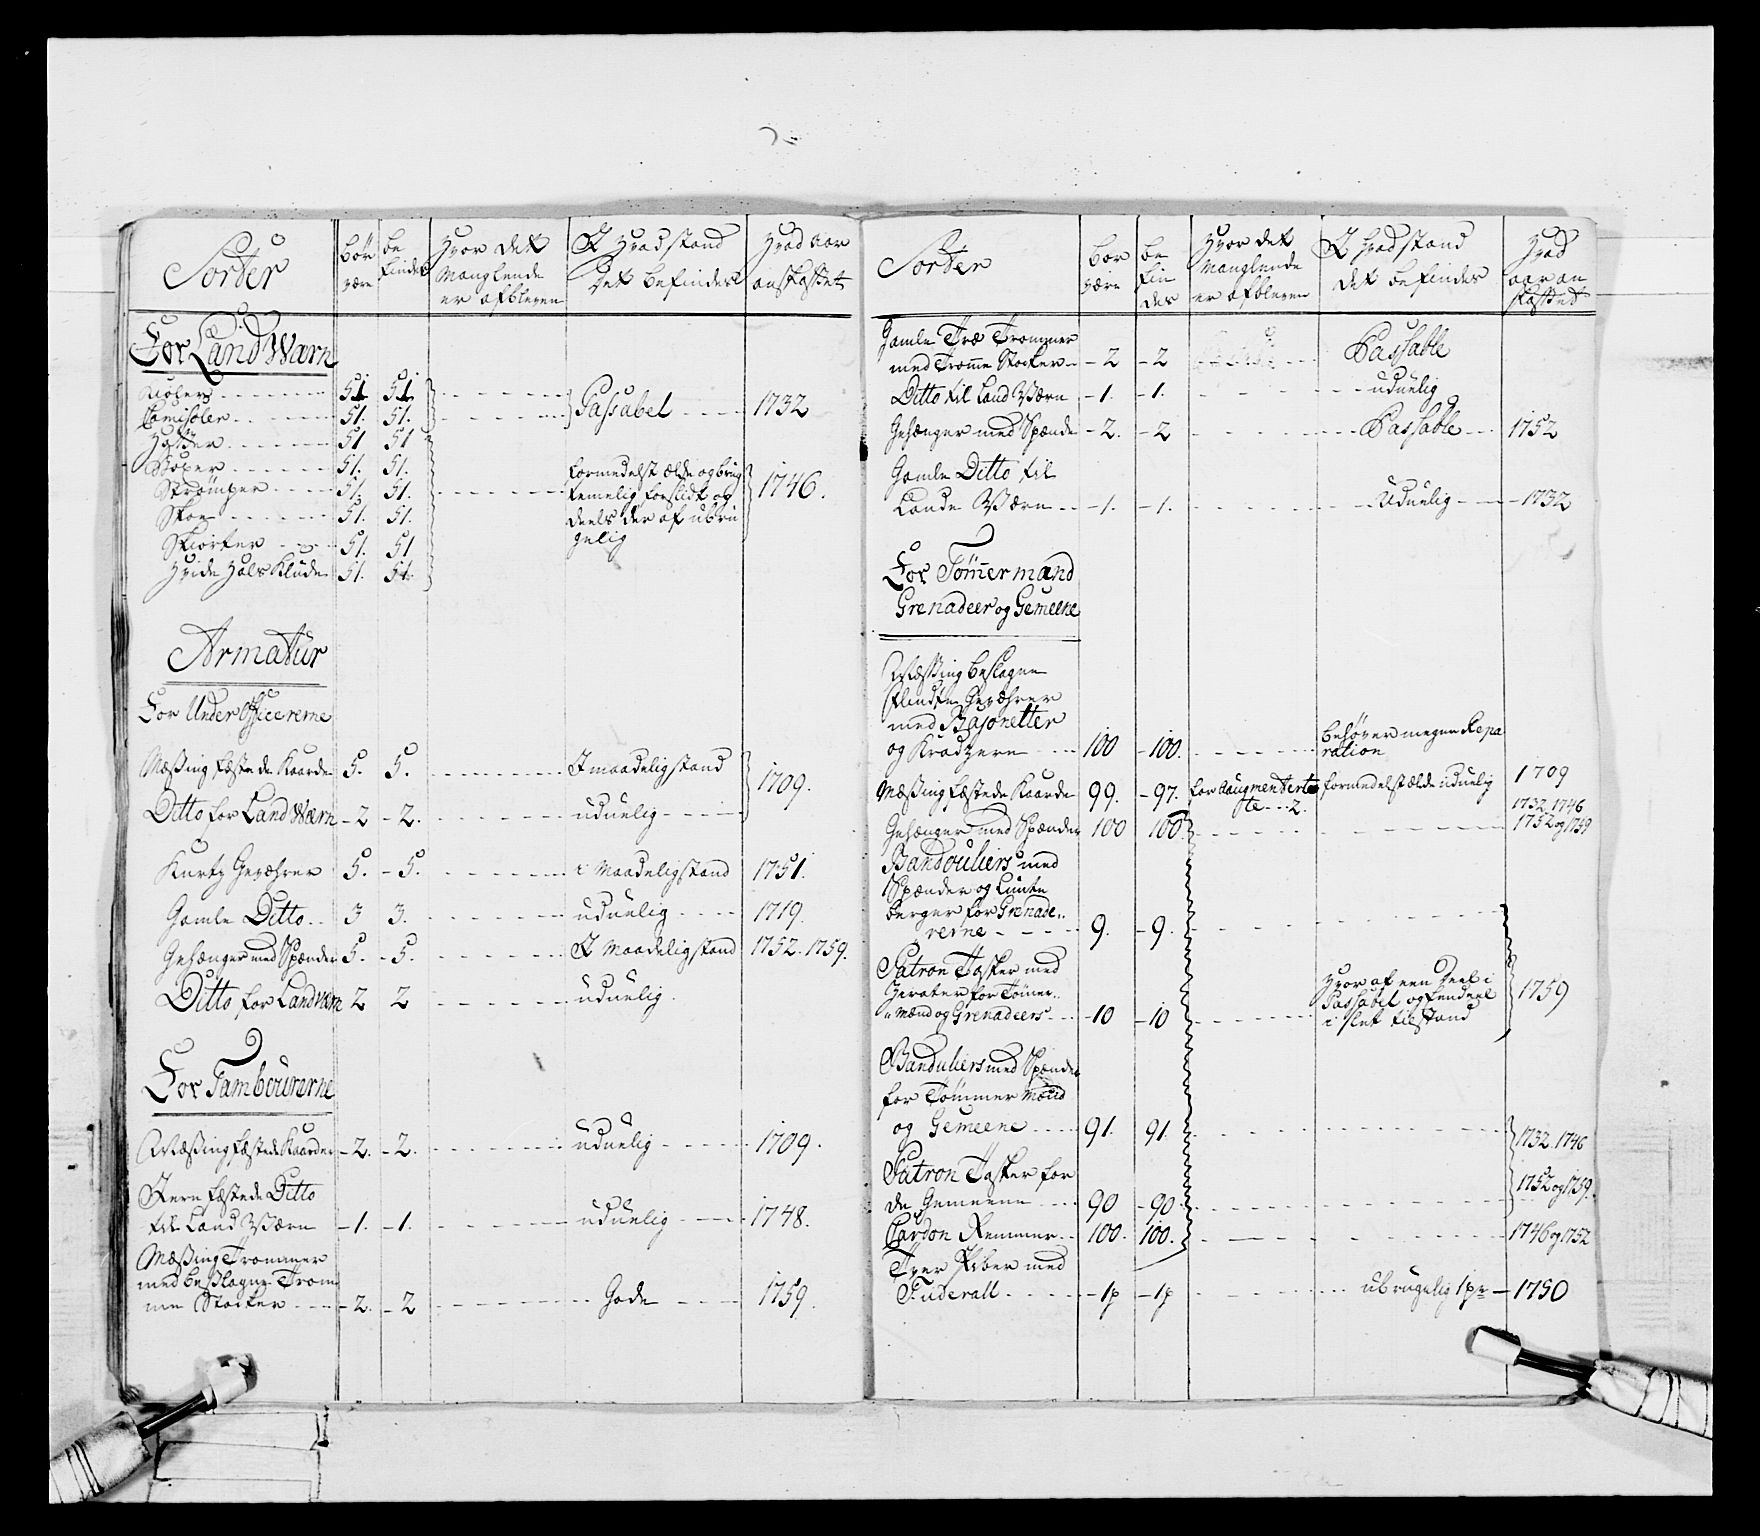 Sorter
bør være
be findes
Hvor det Manglende er afbleven
I Hvad stand Det befindes
Hvad aar anskaffet
For Land Wærn
Kioler 51 51
Camisoler 51. 51. Passabel 1732
Hatter 51 51
Buxer 51. 51.
Strømper 51. 51. formedelst ælde og brug temelig forslidt og deels der af ubrugelig 1746.
Skoe 51. 51.
Skiorter 51. 51
Hvide Hals Klude 51. 51.
Armatur
For Under Officererne
Mæssing fæstede Kaarde 5. 5. I maadelig stand
1709.
Ditto for Land Wærn 2 2. uduelig
Kurtz Gevæhrer 5. 5. i Maadelig stand 1751.
Gamle Ditto 3 3. uduelig 1719.
Gehænger med Spænder 5. 5. I Maadelig stand 1752. 1759.
Ditto for Landværn 2 2 uduelig.
For Tambourerne
Mæssing fæstede Kaarder 2. 2. uduelig 1709.
Jern fæstede Ditto
til Land Wærn 1. 1. uduelig 1748.
Mæssing Trommer
med beslagne Trom
me Stocker 2. 2 Gode 1759.
Sorter
bør være
be fin des
Hvor det Manglende er afbleven
I Hvad stand det befindes
Hvad aar an skaffet
Gamle Træ Trommer
med Tromme Stocker 2 2 Passable
Ditto til Land Wærn 1. 1. uduelig
Gehænger med Spænde 2. 2 Passable 1752
Gamle Ditto til
Lande Wærn 1. 1. Uduelig 1732
For Tømmermænd
Grenadeer og Gemeene
Mæssing beslagne
Flindte Gevæhrer
med Bajonetter
og Kradzere 100 100. behøver megen Repa
ration
Mæssing fæstede Kaarde 99. 97. for Augmenterte formedelst ælde uduelig 1709
te 2.
1732. 1746
Gehænger med Spænder 100 100 1752 og 1759
Bandouliers med
Spænder og Lunte
berger for Grenade
rerne 9. 9.
Patron Tasker med
Zirater for Tømer
Mænd og Grenadeers 10 10 Hvor af een Deel i Passabel og Endeel i slet tilstand 1759
Banduliers med Spænder
for Tømmer Mænd
og Gemeene 91. 91. 1732. 1746
Patron Tasker for
de Gemeene 90 90. 1752 og 1759.
Cardon Remmer 100. 100. 1746 og 1752
Tver Piber med
Fuderall 1 p 1 p ubrugelig 1 pr 1750